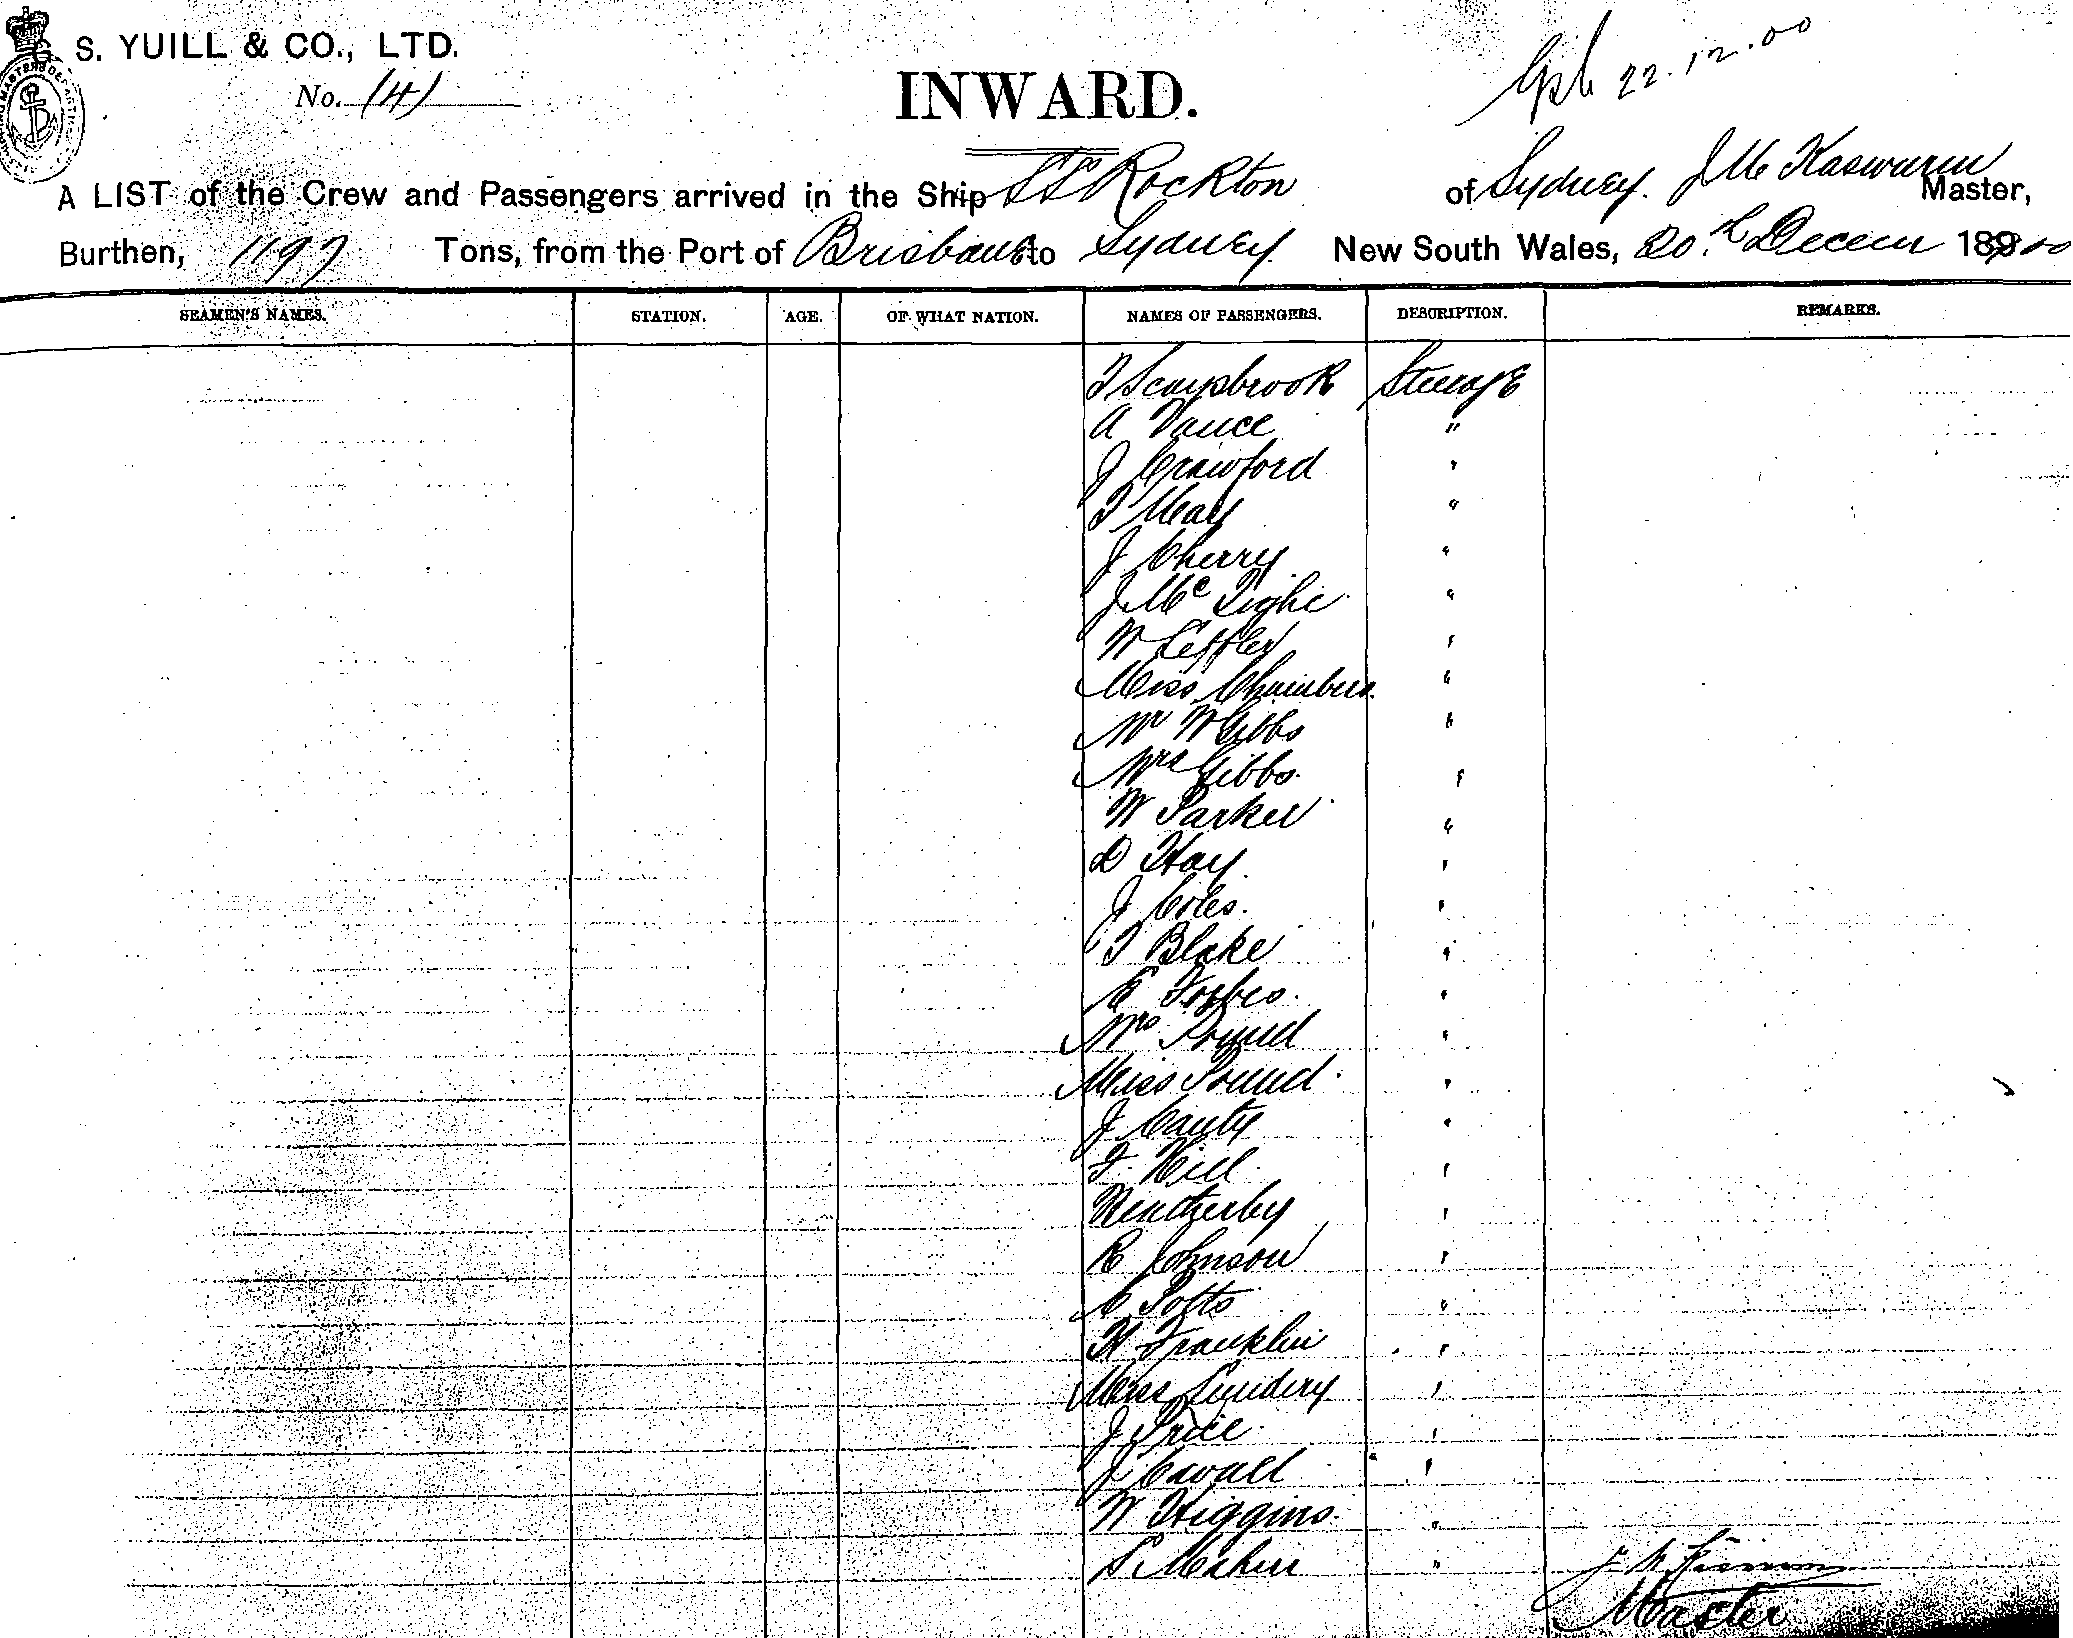 S. YUILL & CO., LTD.
No. 141
INWARD.
22.12.00
A LIST of the Crew and Passengers arrived in the Ship SS Rockton of Sydney. Master,
Burthen, 1197 Tons, from the Port of Brisbane to Sydney New South Wales, 20th Decem 1900
SEAMEN'S NAMES. STATION. AGE. OF WHAT NATION. NAMES OF PASSENGERS. DESCRIPTION. REMARKS.
T Scarysbrook Steerage
A Vance "
J Crawford "
T May "
J Cherry "
J Mc Tighe "
W Leffler "
Miss Chambers "
Mr W Gibbs "
Mrs Gibbs "
W Parker "
D Hay "
J Coles "
T Blake "
E Forbes "
Mrs Pound "
Miss Pound "
J Canty "
F Hill "
Weatherby "
R Johnson "
C Potts "
H Franklin "
Miss "
J Price "
J "
W Higgins "
S Maher "
Master